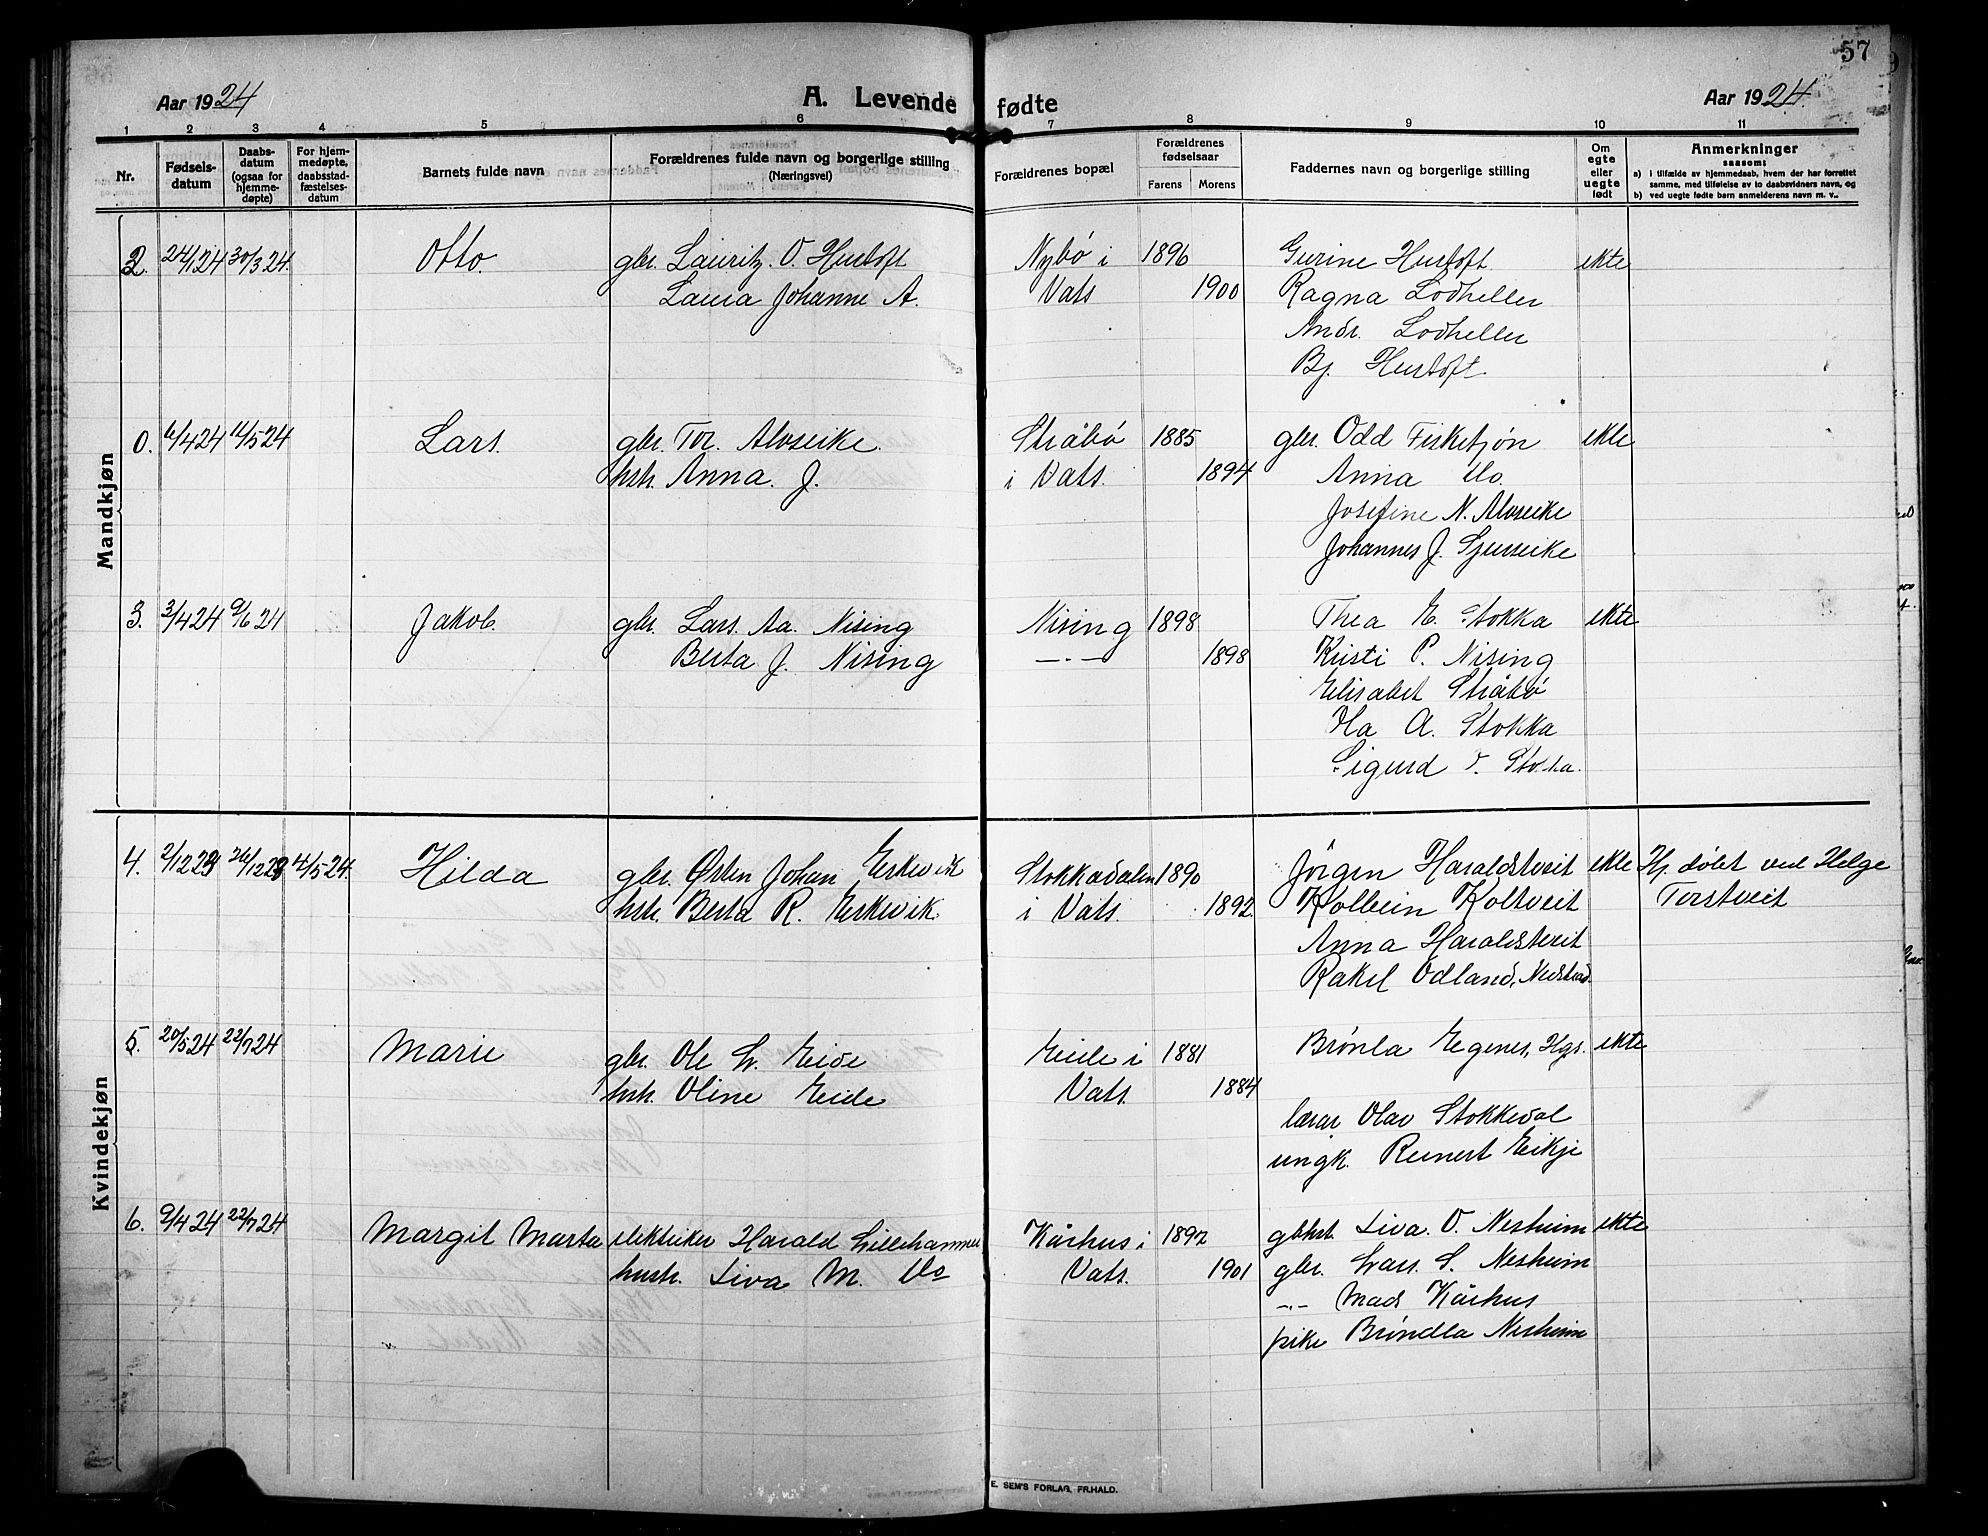 57
Aar 1924
A. Levende fødte
Aar 1924
1 2 3 4 5 6 7 8 9 10 11
Nr.
Fødsels-
datum
Daabs-
datum
(ogsaa for
hjemme-
døpte)
For hjem-
medøpte,
daabsstad-
fæstelses-
datum
Barnets fulde navn
Forældrenes fulde navn og borgerlige stilling
(Næringsvei)
Forældrenes bopæl
Forældrenes
fødselsaar
Farens Morens
Faddernes navn og borgerlige stilling
Om
egte
eller
uegte
født
Anmerkninger
saasom:
a) i tilfælde av hjemmedaab, hvem der har forrettet
samme, med tilføielse av to daabsvidners navn, og
b) ved uegte fødte barn anmelderens navn m. v..
Mandkjøn
2. 24/1 24 30/3 24. Otto. gbr. Lauritz O. Hustoft Nybø i 1896 Gurine Hustoft ekte
Laura Johanne A. Vats 1900 Ragna Lodheller
Andr. Lodheller
Bj. Hustoft.
0. 6/4 24 11/5 24 Lars. gbr. Tor. Alvseike. Stråbø 1885 gbr. Odd Fisketjøn ekte
hstr. Anna. J. i Vats. 1894 Anna do.
Josefine N. Alvseike
Johannes J. Sjurseike
3. 3/4 24 9/6 24 Jakob. gbr. Lars. Aa. Nising Nising 1898 Thea E. Stokka ekte
Berta J. Nising —.— 1898 Kristi P. Nising
Elisabet Stråbø
Ola A. Stokka
Sigurd O. Stokka.
Kvindekjøn
4. 2/12 23 26/12 23 4/5 24. Hilda gbr. Østen Johan Eskevik Stokkadalen 1890 Jørgen Haraldstveit ekte Hj. døbt ved Helge
hstr. Berta R. Eskevik i Vats. 1892. Kolbein Koltveit Torstveit
Anna Haraldstveit
Rakel Odland, Nedstrand.
5. 20/5 24 22/7 24 Marie gbr. Ole L. Eide Eide i 1881 Brønla Egenes, Hgs. ekte
hstr. Oline Eide Vats. 1884
lærar Olav Stokkedal
ungk. Reinert Eikje
6. 9/4 24 22/7 24 Margit Marta elektriker Harald Lillehammer Kårhus i 1897 gbhst. Siva. O. Nesheim ekte
hustr. Siva M. do Vats. 1901 gbr. Lars. S. Nesheim
—"— Mads Kårhus
pike Brøndla Nesheim
E. SEM'S FORLAG, FR.HALD.